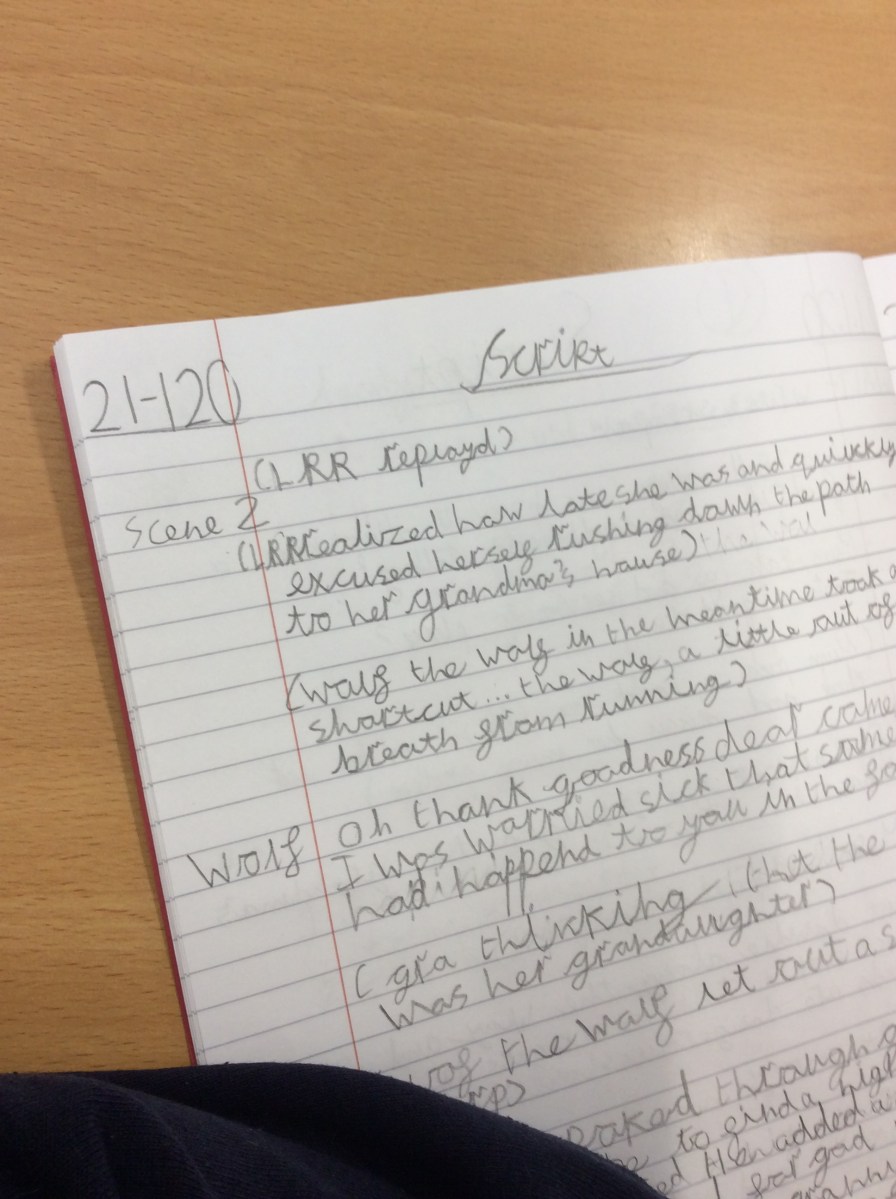 Script
21-120
(LRR replayd)
Scene 2
(LRR realized how late she was and quickly
excused herself rushing down the path
to her grandma's house)
(wolf the wolf in the meantime took a
shortcut... the wolf, a little out of
breath from running.)
Wolf Oh thank goodness dear came
I was worried sick that some
had happend to you in the fo
(gra thinking that the
was her grandaughter)
the wolf let out a s
through
to find a high
added a
god